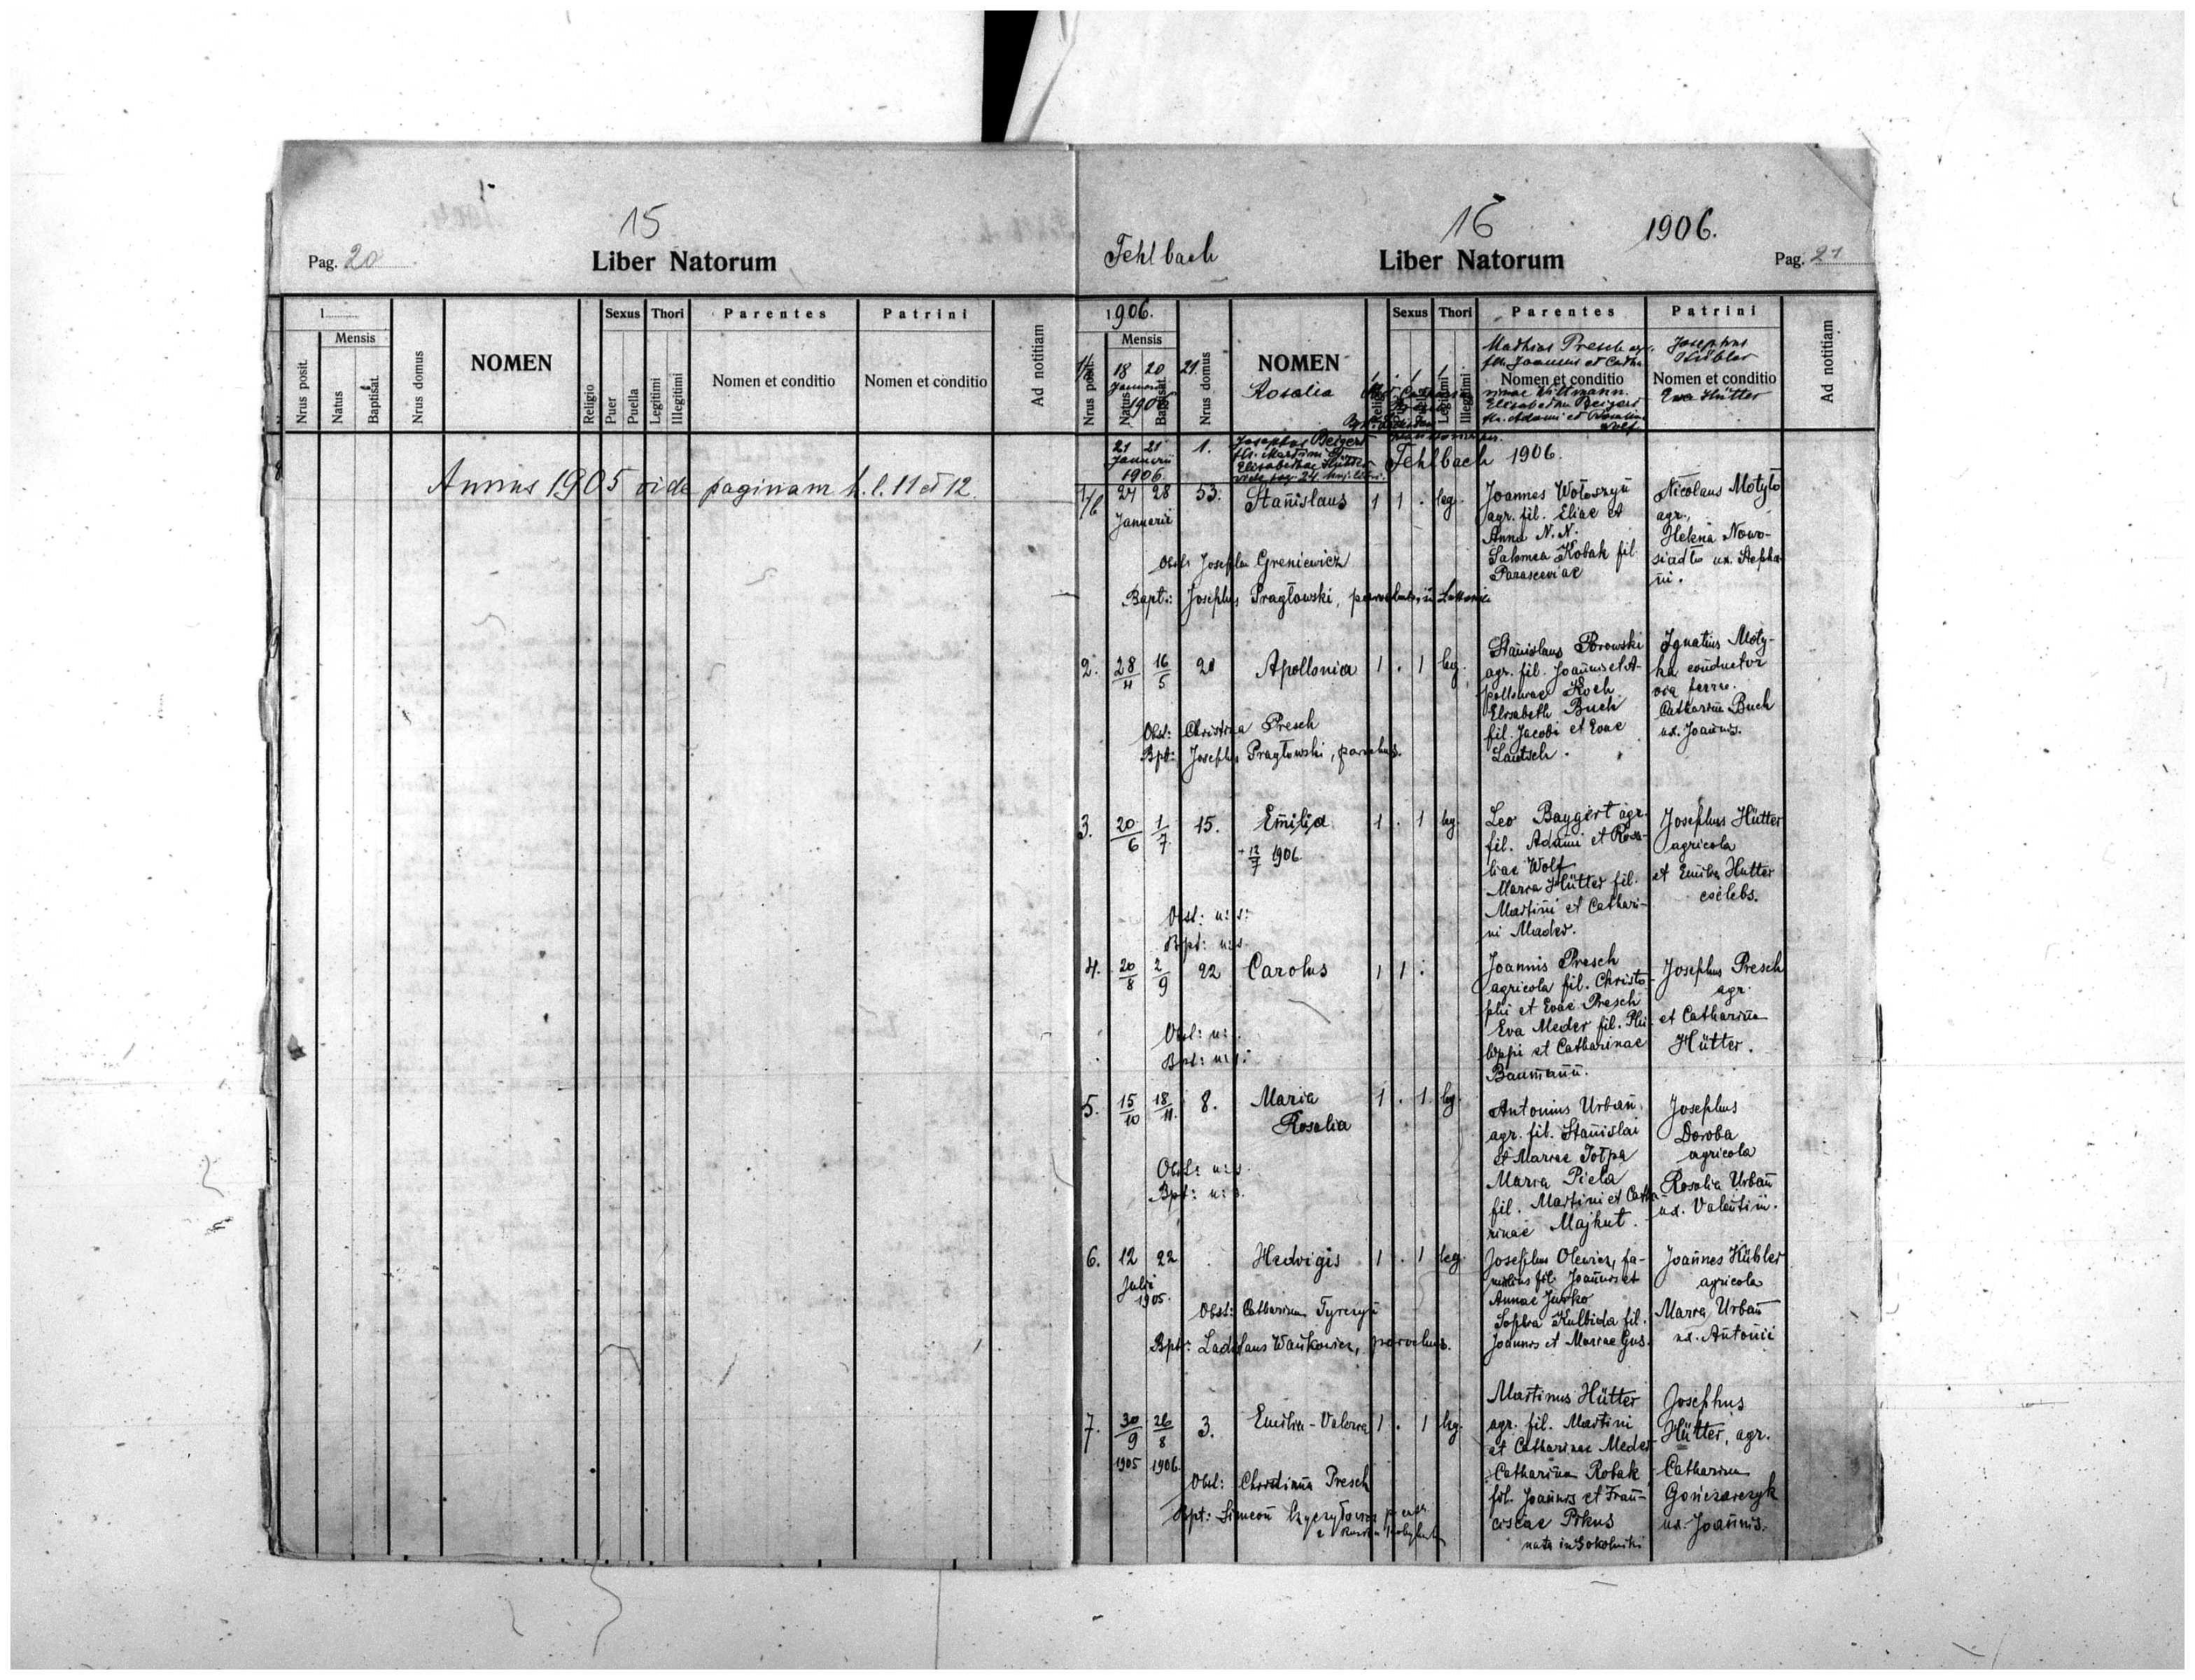 15
Pag. 20
Liber Natorum
1
Mensis
Nrus posit.
Natus
Baptisat.
Nrus domus
NOMEN
Religio
Sexus
Puer
Puella
Thori
Legitimi
Illegitimi
Parentes
Nomen et conditio
Patrini
Nomen et conditio
Ad notitiam
Annus 1905 vide paginam h. l. 11 et 12.
16
1906.
Fehlbach
Liber Natorum
Pag. 21
1906.
Mensis
Nrus posit.
Natus
Baptisat.
Nrus domus
NOMEN
Religio
Sexus
Puella
Thori
Legitimi
Illegitimi
Parentes
Nomen et conditio
Patrini
Nomen et conditio
Ad notitiam
18 20
Januarii
1906
21.
Rosalia
Mathias Presch agr.
fil. Joannis et Catha
rinae Wittmann.
Elisabetha Beigert
fil. Adami et Rosaliae
Wolf
Josephus
Kübler
Eva Hütter
21 21
Januarii
1906
1.
Josephus Beigert
fil. Martini et
Elisabethae Hütter
vide pag. 24 huj. libri.
Fehlbach 1906.
27 28
Januarii
53.
Stanislaus
1 1 . leg.
Joannes Wołoszyn
agr. fil. Eliae et
Anna N. N.
Salomea Kobak fil.
Parasceviae
Nicolaus Motyło
agr.,
Helena Nowo-
siadło ux. Stepha-
ni.
Obst: Josepha Greniewicz
Bapt: Josephus Pragłowski,
2.
28/4
16/5
20
Apollonia
1 . 1 leg.
Stanislaus Borowski
agr. fil. Joannis et A-
polloniae Koch
Elisabeth Buch
fil. Jacobi et Evae
Lautsch.
Ignatius Moty-
ka conductor
via ferrea.
Catharina Buch
ux. Joannis.
Obst: Christina Presch
Bpt: Josephus Pragłowski, parochus.
3.
20/6
1/7
15.
Emilia
+ 12/7 1906.
1 . 1 leg.
Leo Baygert agr.
fil. Adami et Rosa-
liae Wolf
Maria Hütter fil.
Martini et Cathari-
ni Mader.
Josephus Hütter
agricola
et Emilia Hütter
coelebs.
Obst: u: s:
Bpt: u: s.
4.
20/8
2/9
22
Carolus
1 1 .
Joannis Presch
agricola fil. Christo-
phi et Evae Presch
Eva Meder fil. Phi-
lippi et Catharinae
Baumann.
Josephus Presch
agr.
et Catharina
Hütter.
Obst: u: s.
Bpt: u: s.
5.
15/10
18/11.
8.
Maria
Rosalia
1 . 1 leg.
Antonius Urban
agr. fil. Stanislai
et Mariae Tołpa
Maria Piela
fil. Martini et Catha-
rinae Majkut.
Josephus
Doroba
agricola
Rosalia Urban
ux. Valentini.
Obst: u: s.
Bpt: u: s.
6.
12 22
Julii
1905.
Hedvigis
1 . 1 leg.
Josephus Olewicz, fa-
mulus fil. Joannis et
Annae Jurko
Sophia Kulbida fil.
Joannis et Mariae Gus.
Joannes Kübler
agricola
Maria Urban
ux. Antonii
Obst: Catharina Tyrczyn
Bpt: Ladislaus Wańkowicz, parochus.
7.
30/9
1905
26/8
1906.
3.
Emilia-Valeria
1 . 1 leg.
Martinus Hütter
agr. fil. Martini
et Catharinae Meder
Catharina Robak
fil. Joannis et Fran-
ciscae Pikus
nata in Sokolniki
Josephus
Hütter, agr.
Catharina
Gończarczyk
ux. Joannis.
Obst: Christina Presch
Bpt: Simeon